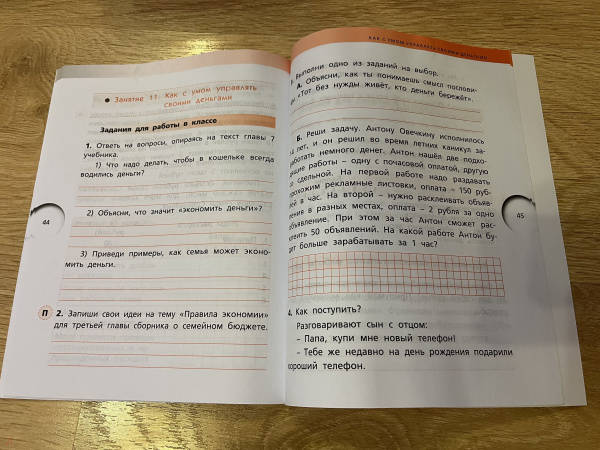 ● Занятие 11. Как с умом управлять
своими деньгами
Задания для работы в классе
1. Ответь на вопросы, опираясь на текст главы 7
учебника.
1) Что надо делать, чтобы в кошельке всегда
водились деньги?
2) Объясни, что значит «экономить деньги»?
3) Приведи примеры, как семья может эконо-
мить деньги.
П 2. Запиши свои идеи на тему «Правила экономии»
для третьей главы сборника о семейном бюджете.
44
КАК С УМОМ УПРАВЛЯТЬ СВОИМИ ДЕНЬГАМИ
Выполни одно из заданий на выбор.
А. Объясни, как ты понимаешь смысл послови-
«Тот без нужды живёт, кто деньги бережёт».
Б. Реши задачу. Антону Овечкину исполнилось
14 лет, и он решил во время летних каникул за-
работать немного денег. Антон нашёл две подхо-
ящие работы – одну с почасовой оплатой, другую
со сдельной. На первой работе надо раздавать
прохожим рекламные листовки, оплата – 150 руб-
лей в час. На второй – нужно расклеивать объяв-
ления в разных местах, оплата – 2 рубля за одно
объявление. При этом за час Антон сможет рас-
клеить 50 объявлений. На какой работе Антон бу-
дет больше зарабатывать за 1 час?
4. Как поступить?
Разговаривают сын с отцом:
– Папа, купи мне новый телефон!
– Тебе же недавно на день рождения подарили
хороший телефон.
45